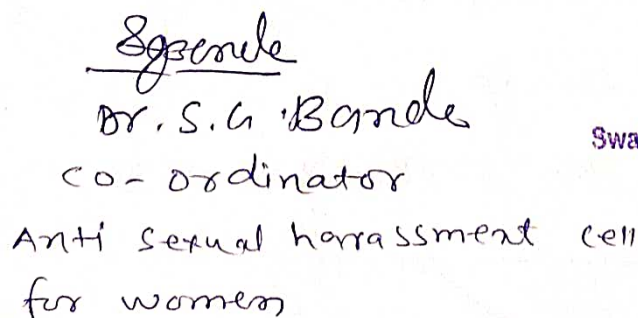 Dr. S. G. Bande
Swa
co-ordinator
Anti sexual harrassment cell
for women